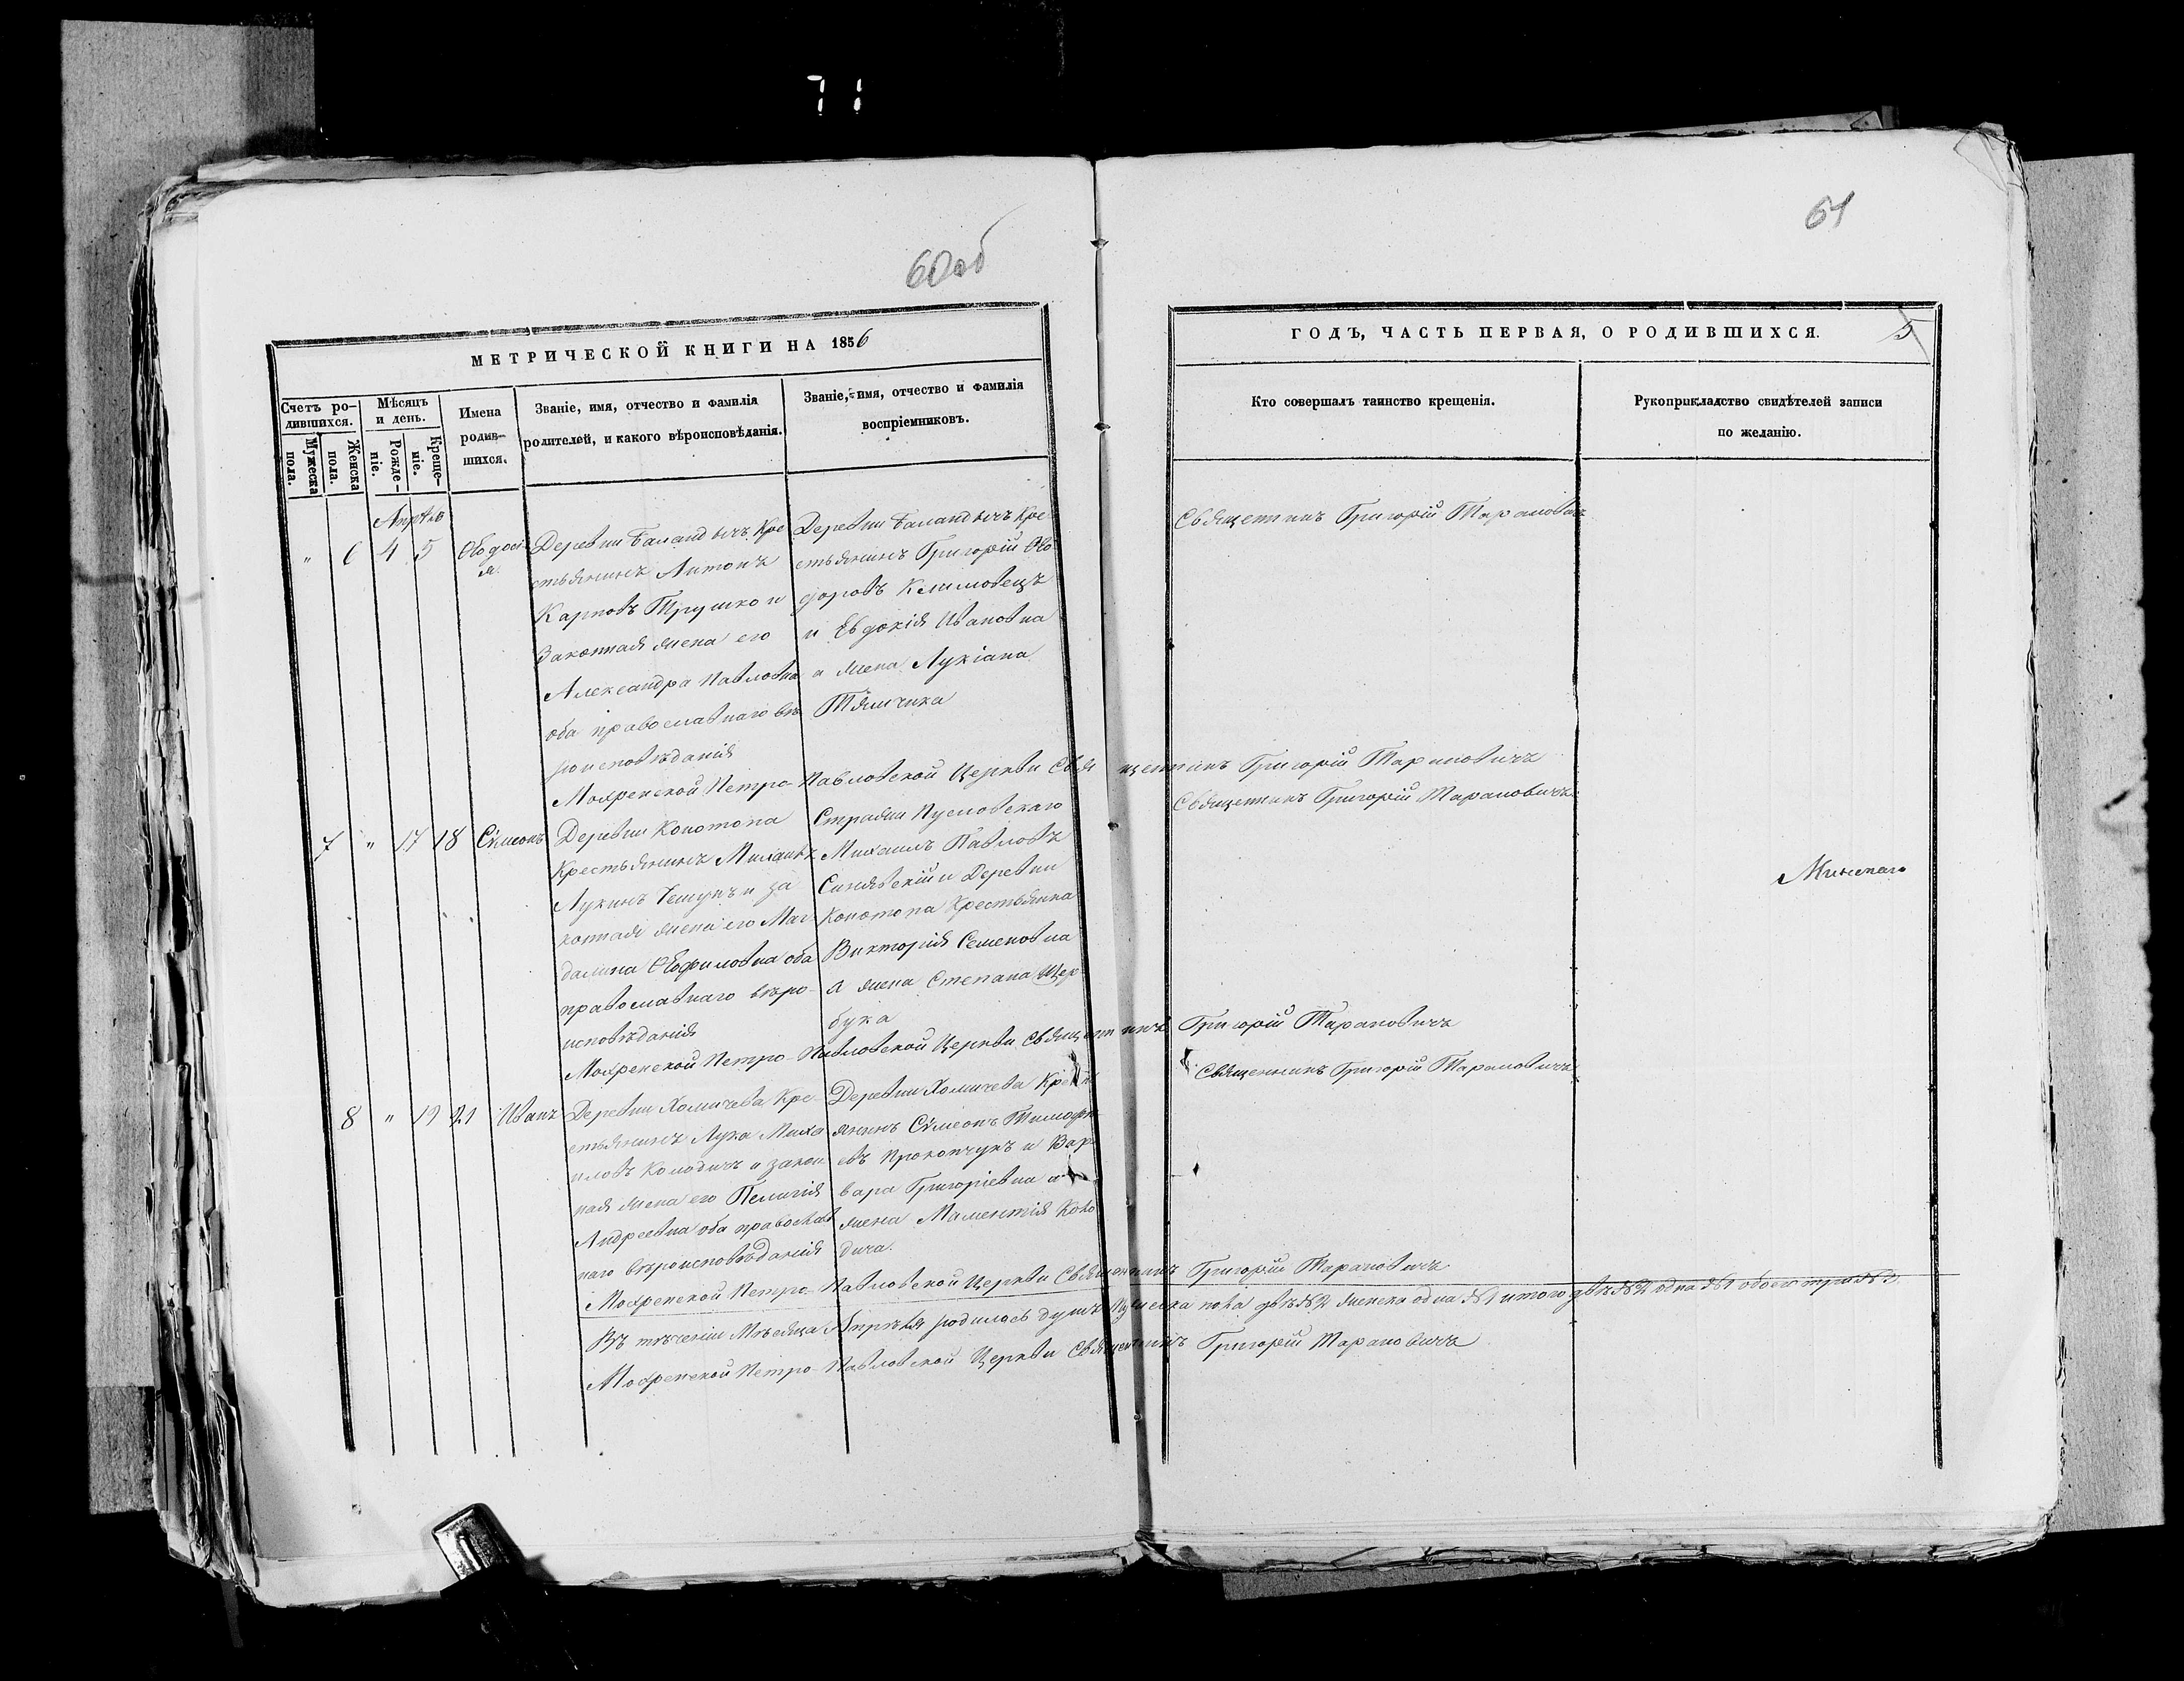 71
60об
61
МЕТРИЧЕСКОЙ КНИГИ НА 1856
ГОДЪ, ЧАСТЬ ПЕРВАЯ, О РОДИВШИХСЯ.
5
Счетъ ро-
дившихся.
Мужеска
пола.
Женска
пола.
Мѣсяцъ
и день.
Рожде-
ніе.
Креще-
ніе.
Имена
родив-
шихся.
Званіе, имя, отчество и фамилія
родителей, и какого вѣроисповѣданія.
Званіе, имя, отчество и фамилія
воспріемниковъ.
Кто совершалъ таинство крещенія.
Рукоприкладство свидѣтелей записи
по желанію.
Апрѣль
" 6 4 5 Ѳеодосі-
я.
Деревни Баландичъ Кре-
стьянинъ Антонъ
Карповъ Трушко и
Законная жена его
Александра Павловна
оба православнаго вѣ-
роисповѣданія
Деревни Баландичъ Кре-
стьянинъ Григорій Ѳео-
доровъ Климовецъ
и Евдокія Ивановна
а жена Лукіана
Тямчика
Священникъ Григорій Тарановичъ
Мохренской Петро-Павловской Церкви Священникъ Григорій Тарановичъ
7 " 17 18 Сѵмеонъ
Деревни Конотопа
Крестьянинъ
Лукинъ и за-
конная жена его Маг-
далина оба
православнаго вѣро-
исповѣданія
Стражи Пусловскаго
Михаилъ Павловъ
и Деревни
Конотопа Крестьянка
Викторія Семеновна
а жена Степана Щер-
бука
Священникъ Григорій Тарановичъ
Минскаго
Мохренской Петро-Павловской Церкви Священникъ Григорій Тарановичъ
8 " 19 21 Иванъ
Деревни Хомичева Кре-
стьянинъ Лука Миха-
иловъ Колодичъ и закон-
ная жена его Пелагія
Андреевна оба православ-
наго вѣроисповѣданія
Деревни Хомичева Крестья-
янинъ Сѵмеонъ Тимофе-
евъ Прокопчукъ и Вар-
вара Григоріевна а
жена Маментія Коло-
дича.
Священникъ Григорій Тарановичъ
Мохренской Петро-Павловской Церкви Священникъ Григорій Тарановичъ
Въ теченіи Мѣсяца Апрѣля родилось душъ Мужеска пола двѣ №2 женска одна №1 итого двѣ №2 одна №1 обоего три №3.
Мохренской Петро-Павловской Церкви Священникъ Григорій Тарановичъ